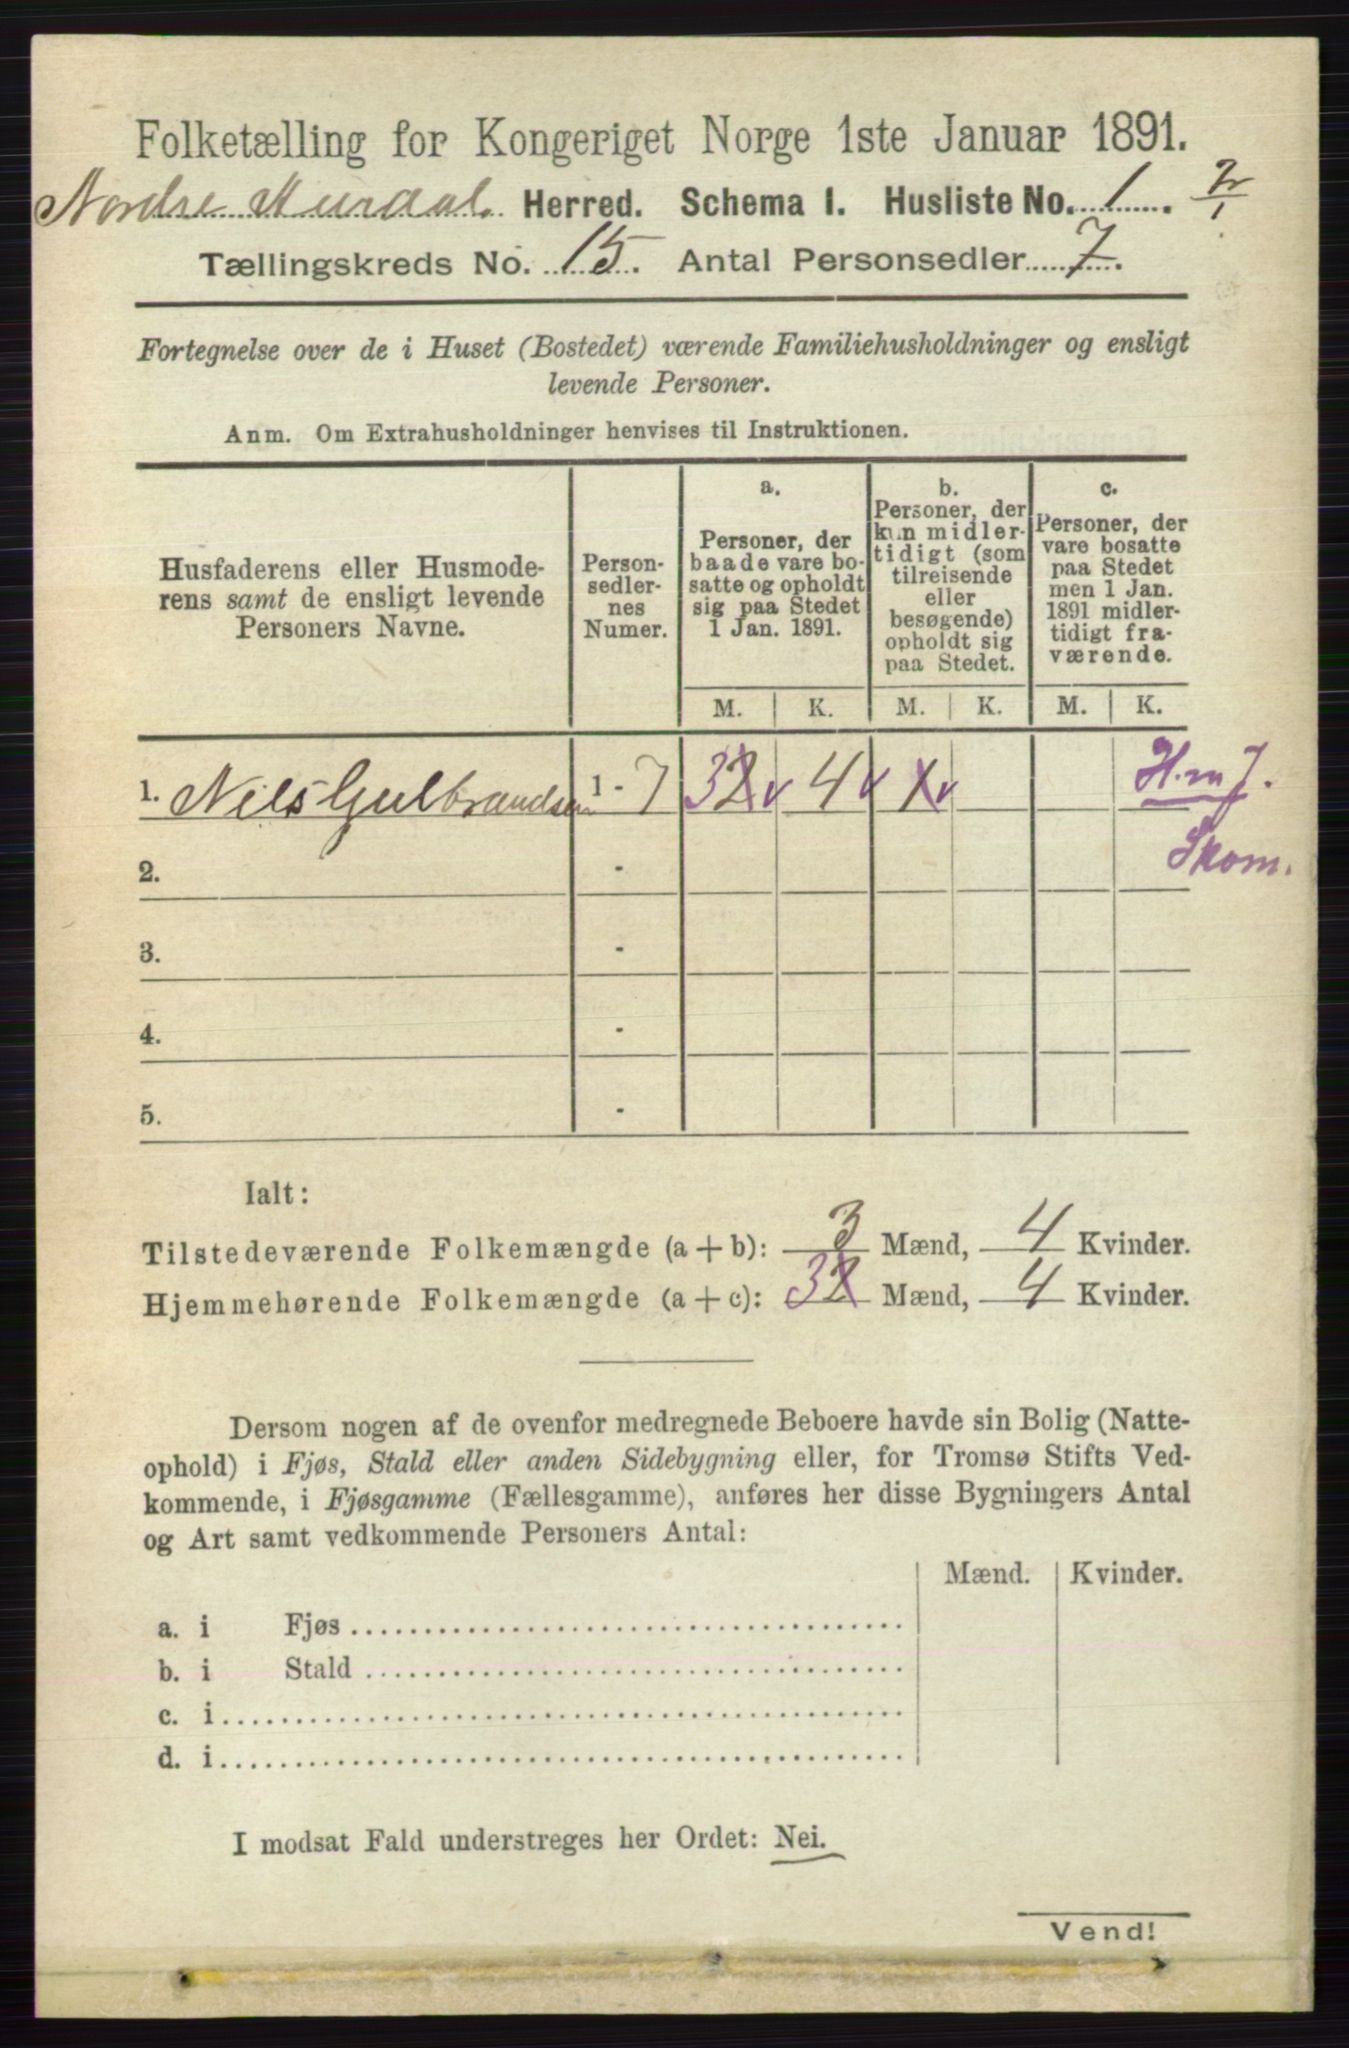 Folketælling for Kongeriget Norge 1ste Januar 1891.
Nordre Aurdal Herred. Schema I. Husliste No. 1. 2/1
Tællingskreds No. 15. Antal Personsedler 7.
Fortegnelse over de i Huset (Bostedet) værende Familiehusholdninger og ensligt
levende Personer.
Anm. Om Extrahusholdninger henvises til Instruktionen.
Husfaderens eller Husmode-
rens samt de ensligt levende
Personers Navne.
Person-
sedler-
nes
Numer.
a.
Personer, der
baade vare bo-
satte og opholdt
sig paa Stedet
1 Jan. 1891.
b.
Personer, der
kun midler-
tidigt (som
tilreisende
eller
besøgende)
opholdt sig
paa Stedet.
c.
Personer, der
vare bosatte
paa Stedet
men 1 Jan.
1891 midler-
tidigt fra-
værende.
M. K. M. K. M. K.
1. Nils Gulbrandsen 1 - 7 32 4 1 H.m7.
Skom.
2. -
3. -
4. -
5. -
Ialt:
Tilstedeværende Folkemængde (a + b): 3 Mænd, 4 Kvinder.
Hjemmehørende Folkemængde (a + c): 32 Mænd, 4 Kvinder.
Dersom nogen af de ovenfor medregnede Beboere havde sin Bolig (Natte-
ophold) i Fjøs, Stald eller anden Sidebygning eller, for Tromsø Stifts Ved-
kommende, i Fjøsgamme (Fællesgamme), anføres her disse Bygningers Antal
og Art samt vedkommende Personers Antal:
Mænd. Kvinder.
a. i Fjøs
b. i Stald
c. i
d. i
I modsat Fald understreges her Ordet: Nei.
Vend!